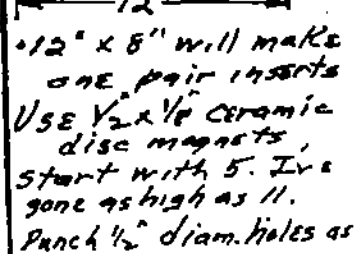 12
•12" x 8" will make
one pair inserts
USE 1/2" x 1/8" ceramic
disc magnets,
start with 5. I've
gone as high as 11.
Punch 1/2" diam. holes as